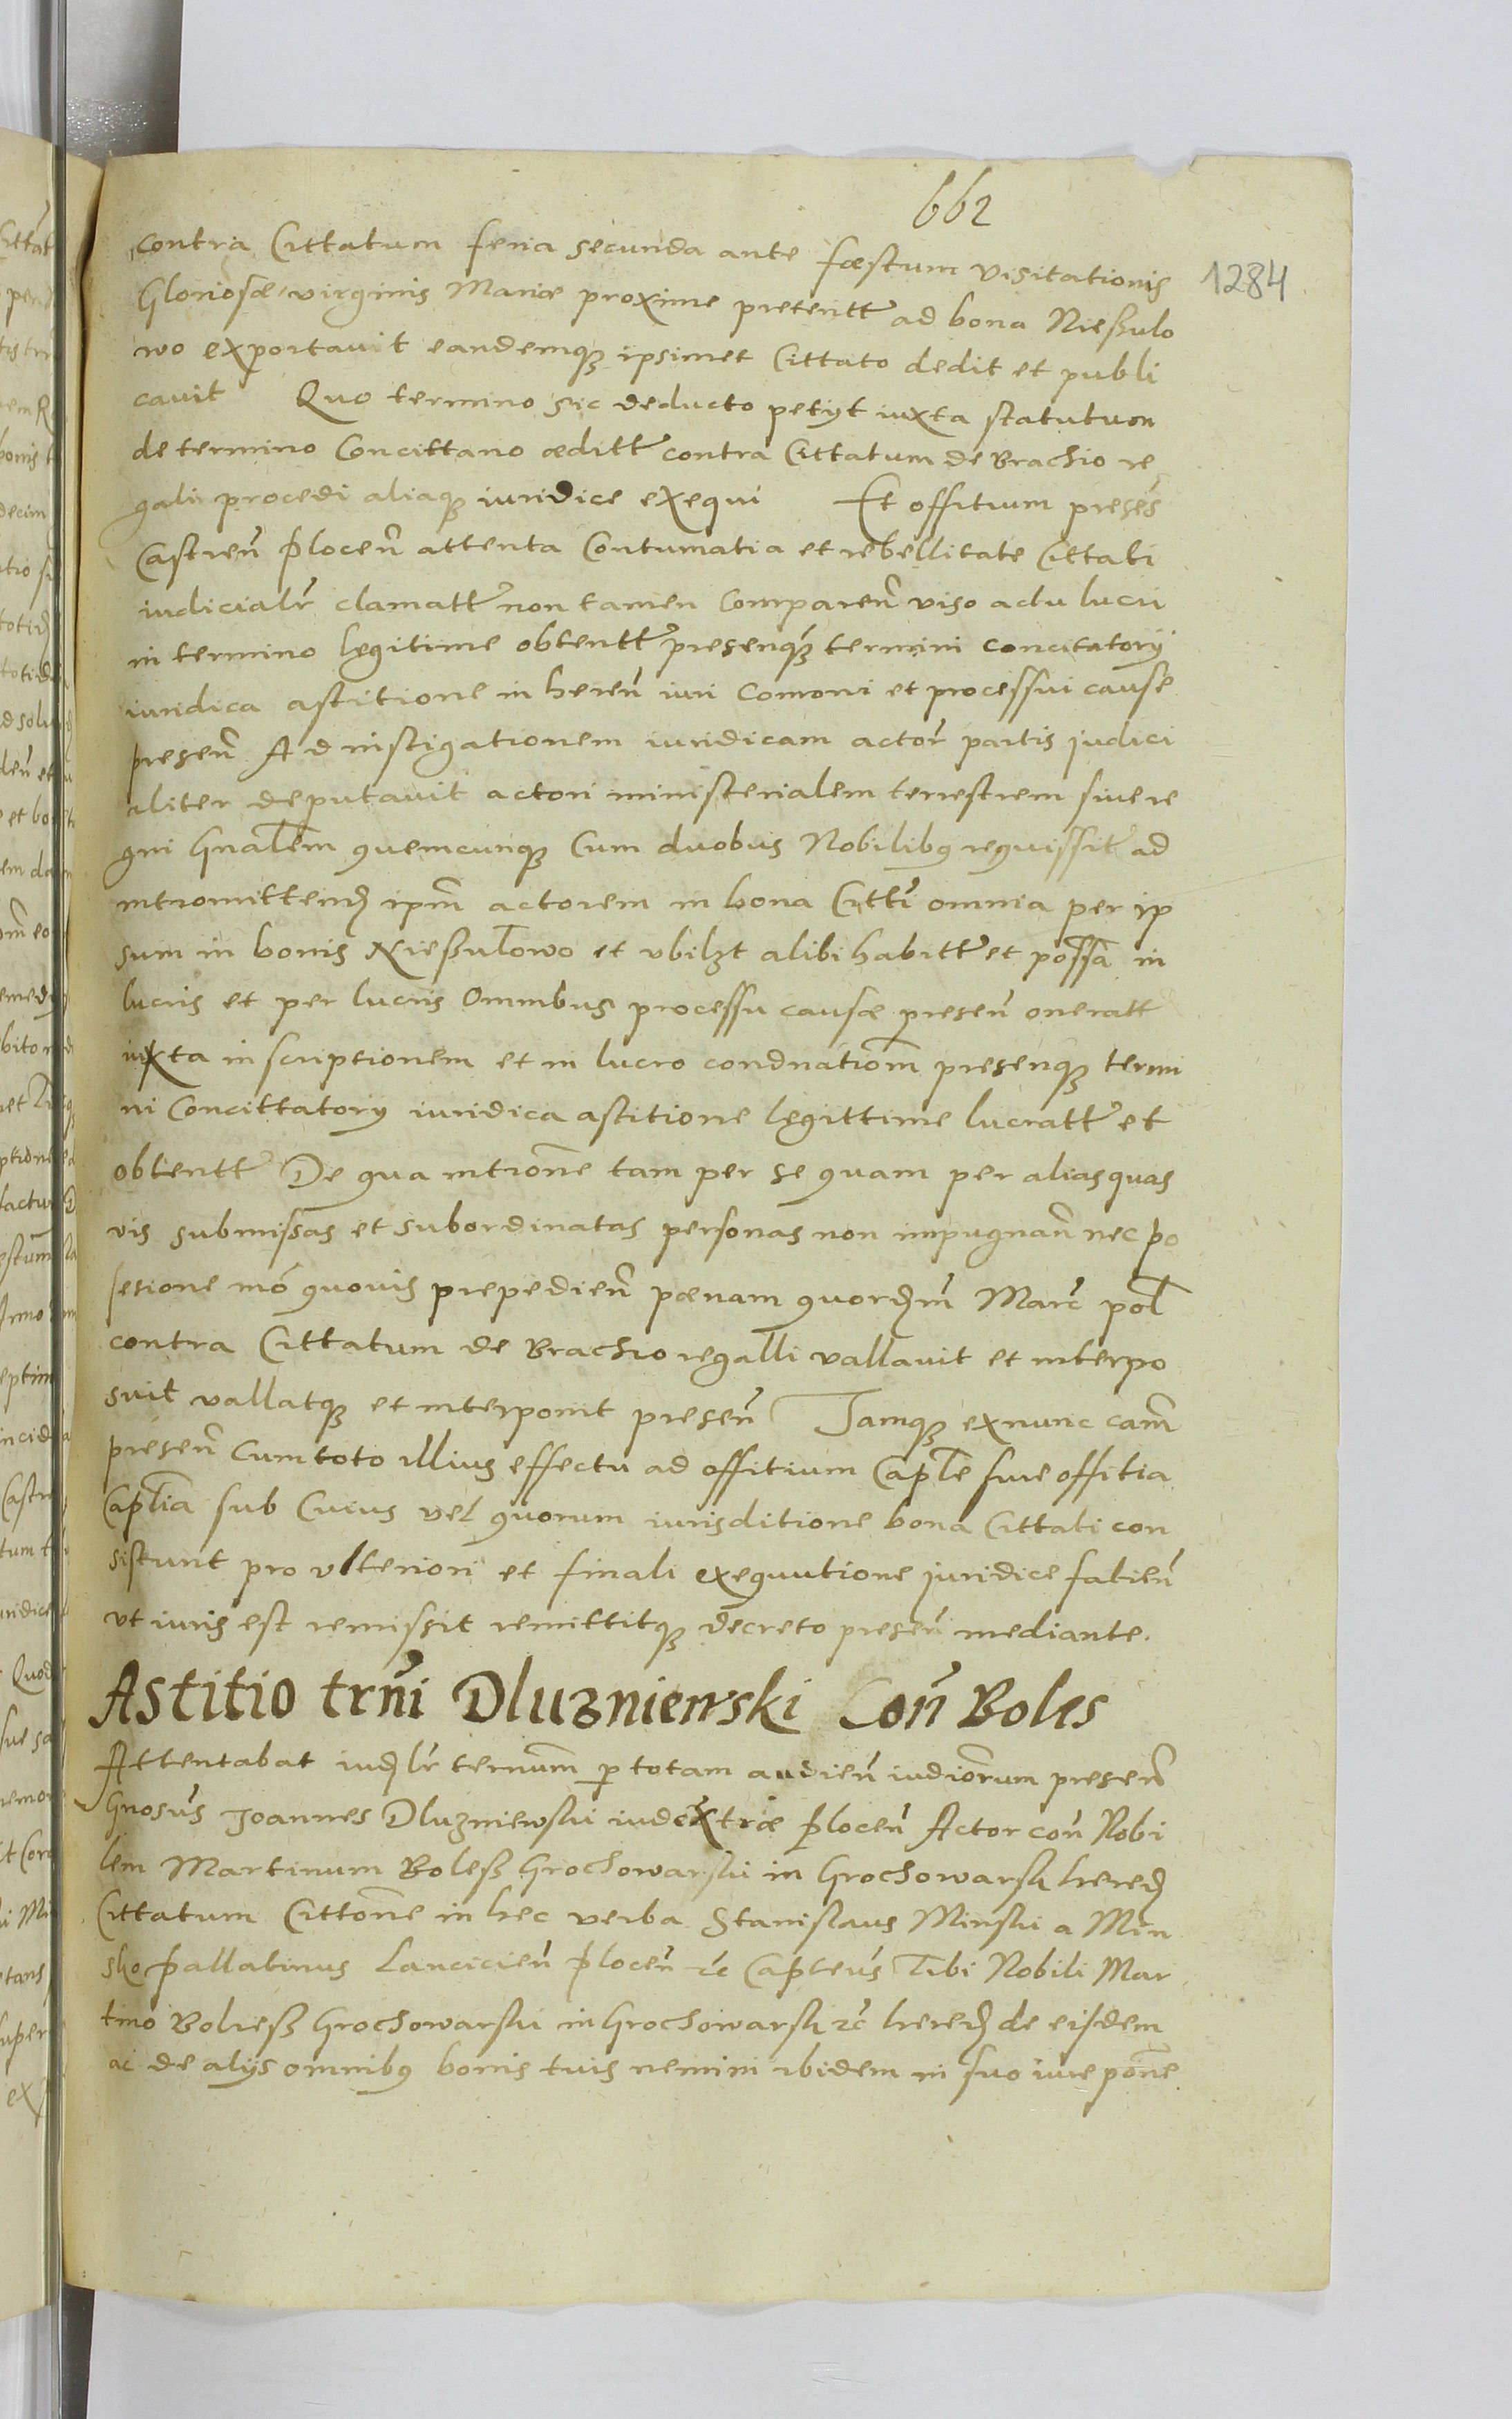 662
1284
contra Cittatum feria secunda ante fœstum visitationis
Gloriosæ virginis Mariæ proxime preteritt ad bona Nießulo
wo exportavit eandemqꝫ ipsimet Cittato dedit et publi
cavit Quo termino sic deducto petyt iuxta statutum
de termino Concittano æditt contra Cittatum de Brachio re
gali procedi aliaqꝫ iuridice exequi Et offitium presēs
Castreñ ploceñ attenta Contumatia et rebellitate Cittati
iudicialr̄ clamatt non tamen Compareñ viso actu lucri
in termino legitime obtentt preseñqꝫ termini concitatory
iuridica astitione in hereñ iuri Comoni et processui cause
preseñ Ad instigationem iuridicam actor̄ partis judici
aliter deputavit actori ministerialem terrestrem siue re
gni Gnalem quemcunqꝫ Cum duobus Nobilibꝯ requissit ad
intromittend ipm̄ actorem in bona Citti omnia per ip
sum in bonis Nießulowo et vbilꝫt alibi habitt et possā in
lucris et per lucris Omnibus processu causæ preseñ oneratt
iuxta inscriptionem et in lucro condnatiom̄ preseñqꝫ termi
ni Concittatory iuridica astitione legittime lucratt et
obtentt De qua intione tam per se quam per alias quas
vis submissas et subordinatas personas non impugnañ nec po
sesione mō quovis prepedieñ pænam quordm̄ Marc̄ pol
contra Cittatum de Brachio regalli vallavit et interpo
suit vallatqꝫ et interponit preseñ Tamqꝫ exnunc cam̄
preseñ Cum toto illius effectu ad offitium Caple siue offitia
Caplia sub Cuius vel quorum iurisditione bona Cittati con
sistunt pro vlteriori et finali exequutione juridice fatieñ
vt iuris est remissit remittitqꝫ decreto preseñ mediante.
Astitio trñi Dluzniewski Coñ Boles
Attentabat iud lr̄ ternum̄ p totam audieñ iudiorum preseñ
Gnosus Joannes Dluzniewski iudex træ ploceñ Actor coñ Nobi
lem Martinum Boleß Grochowarski in Grochowarsk hered
Cittatum Cittone in hec verba Stanislaus Minski a Min
sko pallatinus Lancicieñ ploceñ ꝛc Capteus Tibi Nobili Mar
tino Boließ Grochowarski in Grochowarsk ꝛc hered de eisdem
ac de alijs omnibꝯ bonis tuis nemini ibidem in suo iure pone